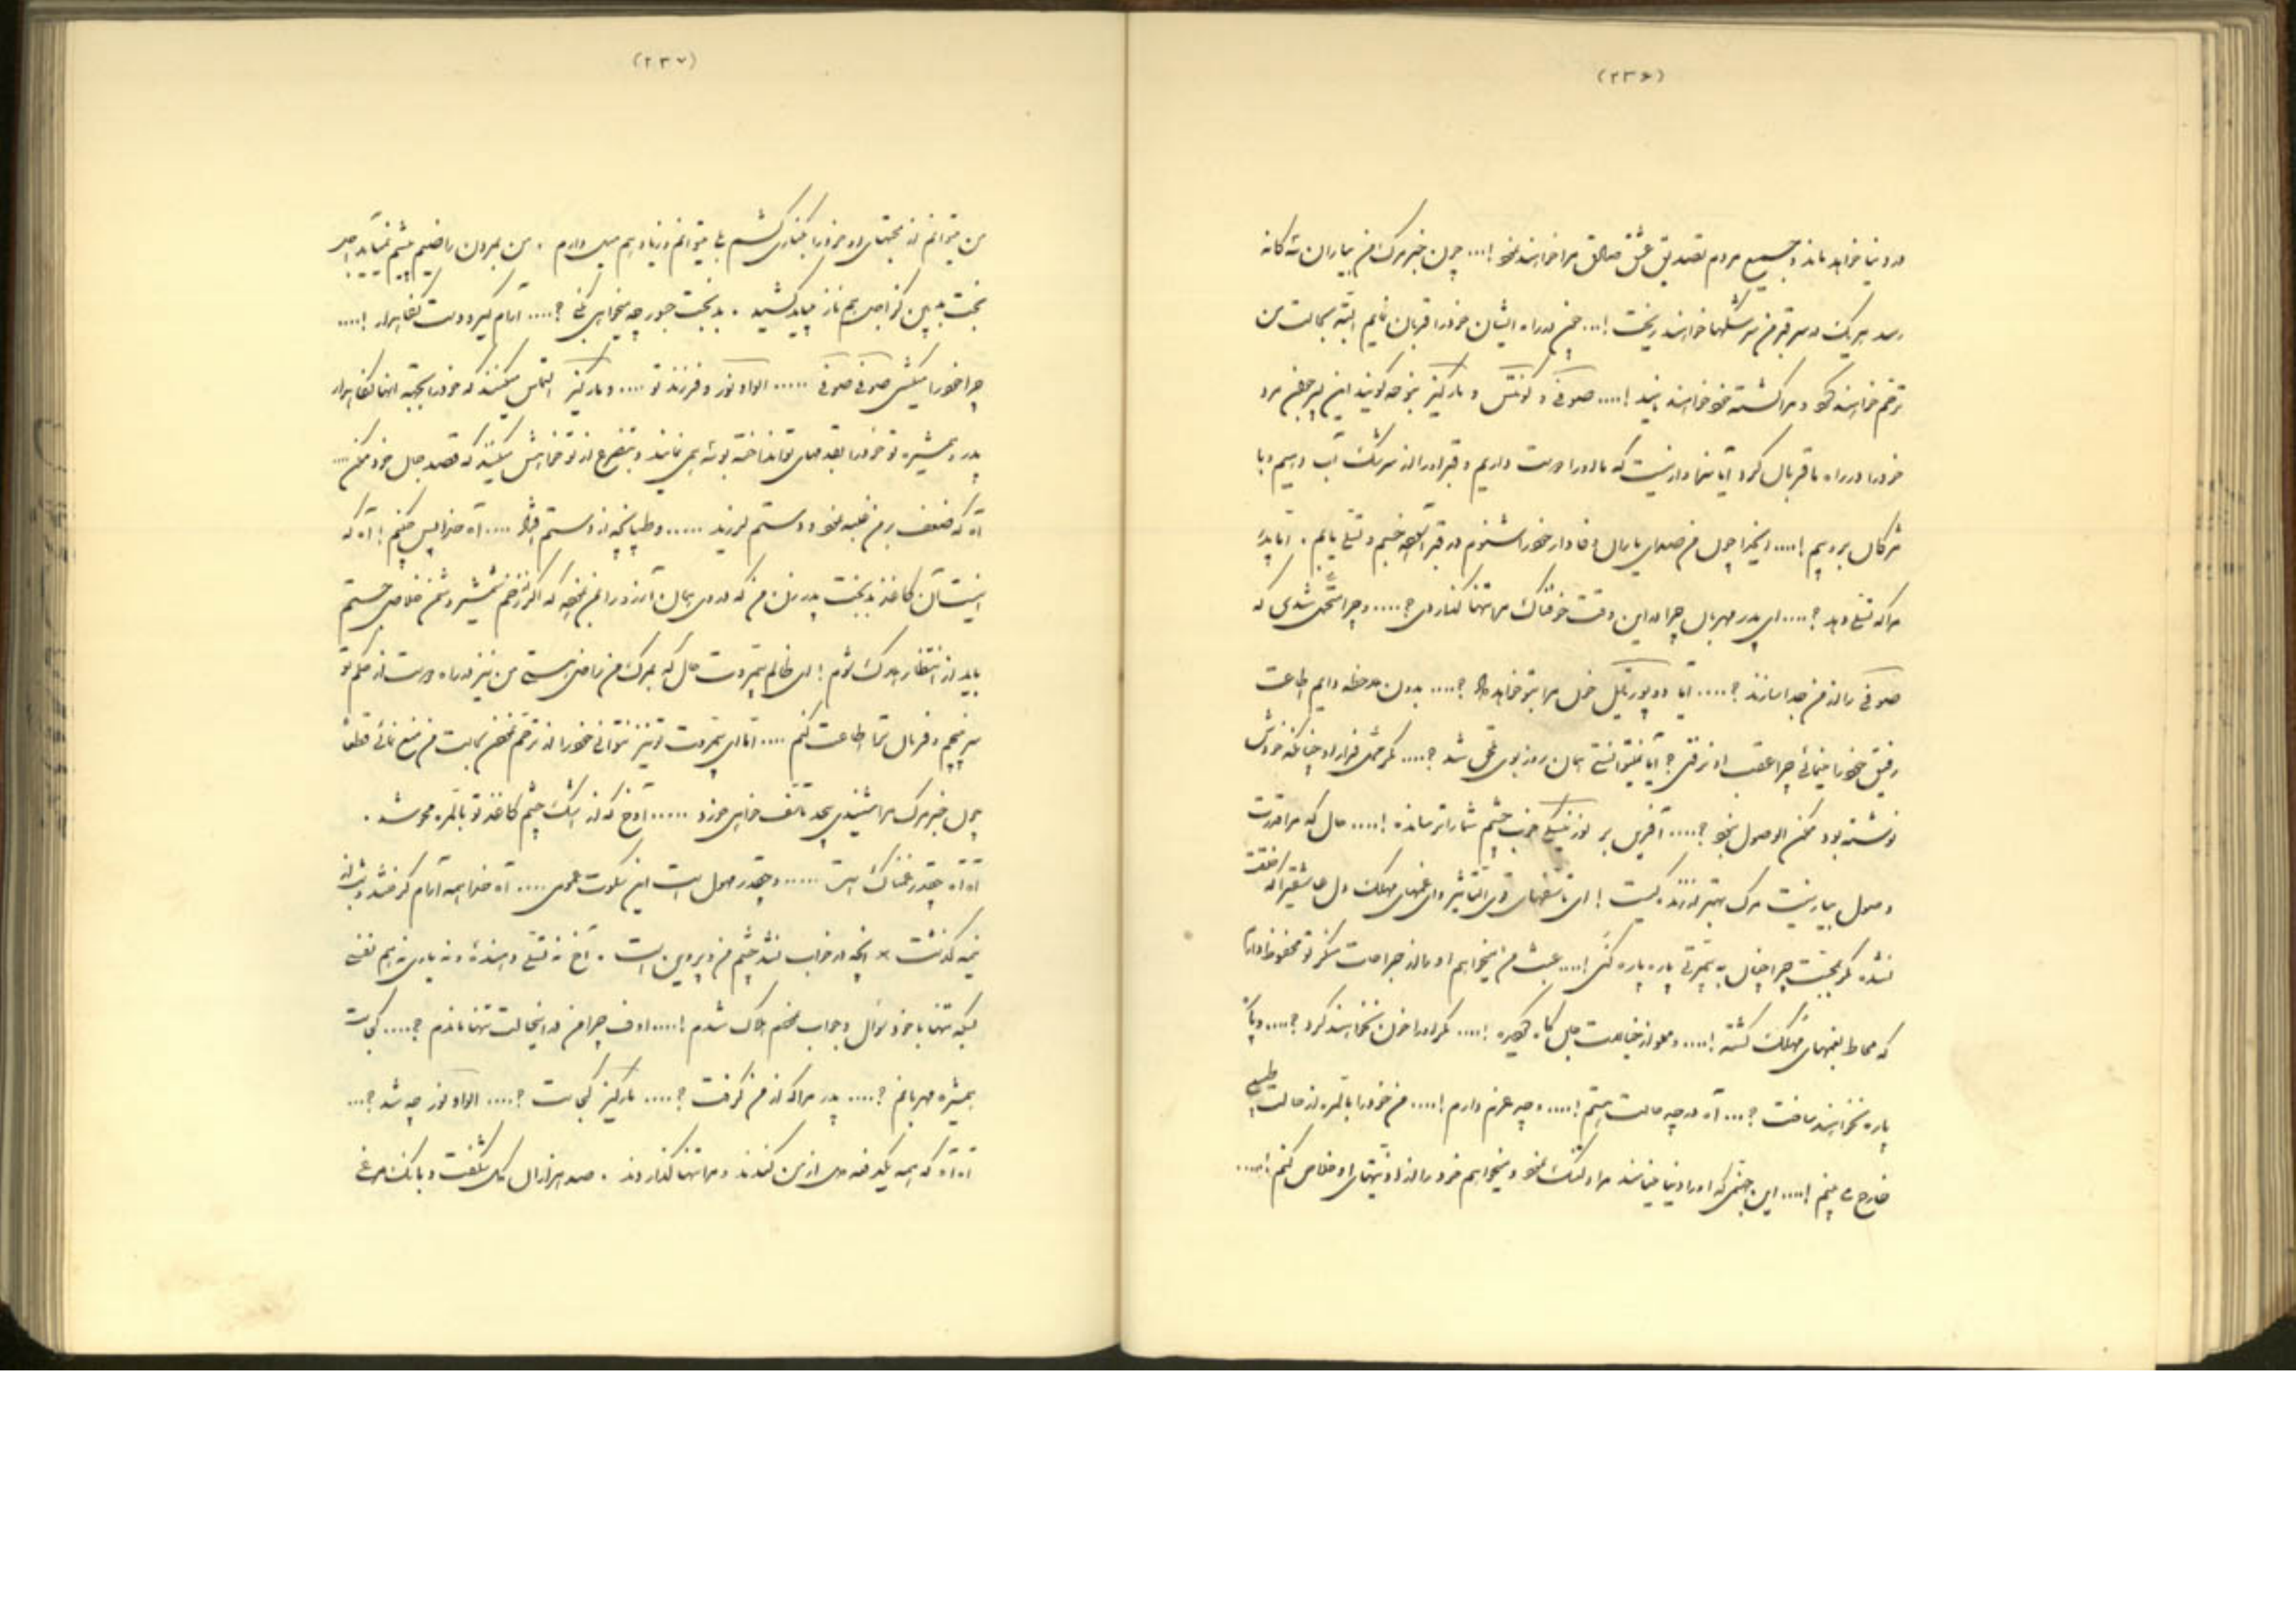 (۲۳۶)
در دنیا خواهد ماند و جمیع مردم تصدیق عشق صادق مرا خواهند نمود !... چون خبر مرگ من بیاران سه گانه
رسد هر یک در سر قبر من سرشکها خواهند ریخت !... من در راه ایشان خود را قربان نمایم البته بحالت من
ترحم خواهند کرد و مرا کشته خود خواهند دید !.... صوفی و کونتس و مارکیز نوحه گویند این پسر جوان مرد
خود را در راه ما قربان کرد آیا سزاوار نیست که ما او را دوست داریم و قبر او را از سرشک آب دهیم و با
مژگان بروبیم !.... اینجا چون من صدای یاران وفادار خود را شنوم در قبر آسوده خسبم و تسلی یابم . اما پدر
مرا که تسلی دهد ؟.... ای پدر مهربان چرا در این وقت خوفناک مرا تنها گذاردی ؟..... و چرا متحمل شدی که
صوفی را از من جدا سازند ؟.... آیا دو پورتایل خون مرا بتو خواهد داد ؟.... بدون ملاحظه دایم اطاعت
رفیق خود را مینمائی چرا عقب او نرفتی ؟ آیا نمیتوانستی همان روز بوی ملحق شد ؟.... مگر محل فرار او چنانکه خودش
نوشته بود ممکن الوصول نبود ؟.... آفرین بر تو نیکی خوب چشم شما را ترسانده !.... حال که مرا قدرت
وصول بیار نیست مرگ بهتر از زندگیست ! ای تأسفهای قوی التأثیر و ای غمهای مهلک دل عاشقی را که خفقت
نشده مگر بجهت چرا چنان به بیمروتی پاره پاره کنی !.... عبث من میخواهم او را از جراحات منکر تو محفوظ دارم
که محاط بغمهای مهلک گشته !.... و مملو از خیالات جان کاه گردیده !.... مگر او را خون نخواهند کرد ؟.... و پاره
پاره نخواهند ساخت ؟... آه در چه حالت هستم !.... و چه عزم دارم !.... من خود را بالمره از حالت طبیعی
خارج می بینم !.... این جهنمی که او را دنیا مینامند مرا دلتنگ نمود و میخواهم خود را از اذیتهای او خلاص کنم !....
(۲۳۷)
من میتوانم از محنتهای او خود را بکناری کشم بلی میتوانم و زیاد هم میل دارم . من بمردن راضیم چشم نمیآید اجل
بخت بد بین کز اجل هم ناز میباید کشید . بدبخت جسور چه میخواهی کنی ؟.... آرام گیر و دست نگاهدار !....
چرا خود را میکشی صوفی صوفی ..... الوادنور و فرزند تو .... و مارکیز التماس میکنند که خود را بجهة آنها نگاهدار
پدر و همشیره تو خود را بقدمهای تو انداخته بوسه می نمایند و بتضرع از تو خواهش میکنند که قصد جان خود مکن ....
آه که ضعف بر من غلبه نمود و دستم لرزید ...... و طپانچه از دستم افتاد .... آه خدا پس چکنم ! آه که
اینست آن کاغذ بدبخت پدر زن من که در وی همان آرزو را بمن نموده که اگر از زخم شمشیر دشمن خلاصی جستم
باید از انتظار هلاک شوم ! ای ظالم بیمروت حال که بمرگ من راضی هستی من نیز در راه دوست از حکم تو
سر نپیچم و فرمان ترا اطاعت کنم .... اما ای بیمروت تو نیز نتوانی خود را از ترحم نمودن بحالت من منع نمائی قطعا
چون خبر مرگ مرا شنیدی بیحد تأسف خواهی خورد ..... آوخ که از اشک چشم کاغذ تو بالمره محو شد .
آه آه چقدر غمناک است ...... و چقدر مهول است این سکوت عمومی .... آه خدا همه آرام گرفتند و شب از
نیمه گذشت * آنچه در خواب نشد چشم من و پروین است . آخ نه تسلی دهنده و نه یاری نه هم نفسی
بلکه تنها با خود سؤال و جواب میکنم هلاک شدم !.... اوف چرا من در اینحالت تنها ماندم ؟.... کجاست
همشیره مهربانم ؟.... پدر مرا که از من گرفت ؟.... مارکیز کجاست ؟.... الوادنور چه شد ؟...
آه آه که همه یکدفعه دل از من کندند و مرا تنها گذاردند . صد هزاران گل شکفت و بانک مرغی